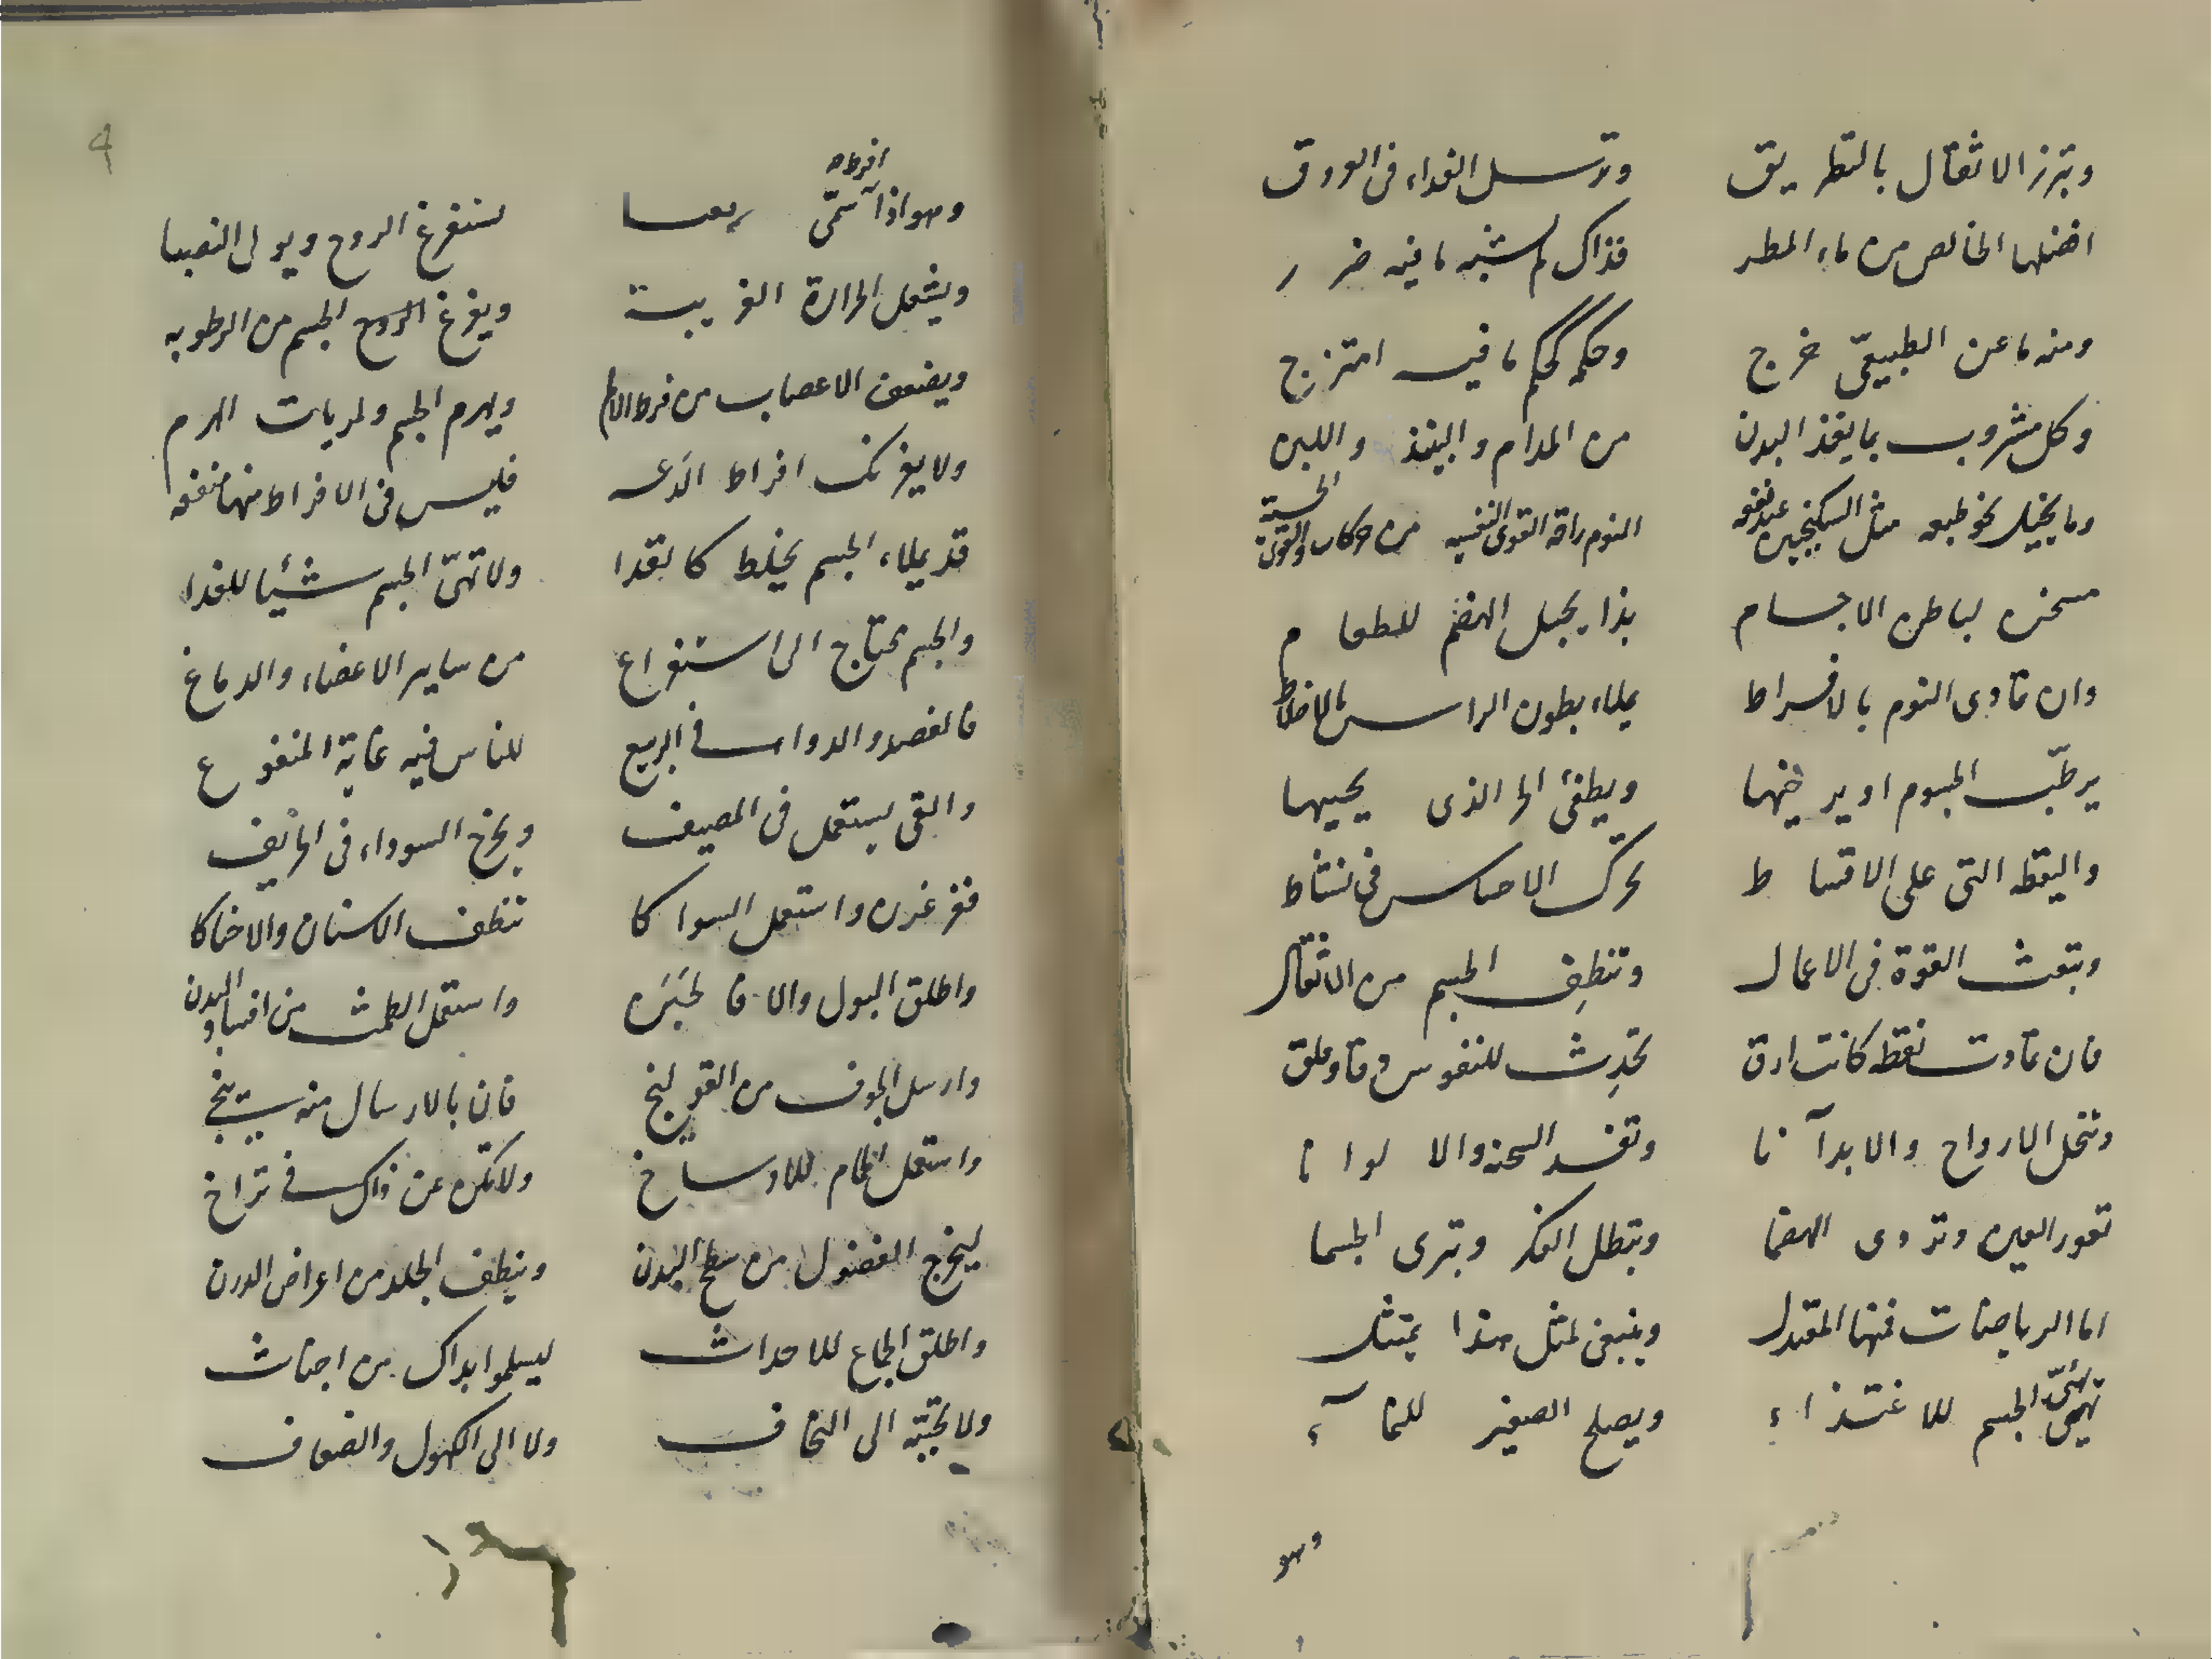 وتبرز الاثقال بالتطريق وترسل الغداء فى العروق
افضلها الخالص من ماء المطر فذاك لم يشبه ما فيه ضرر
ومنه ما عن الطبيعىّ خرج وحكمه كحكم ما فيه امتزج
وكل مشروب بما يغذ البدن من المدام والبنيذ واللبن
وما يحيل نحو طبعه مثل السكنجبين عند نفعه النوم راقه القوى النفسيه من حركات والقوى الحسية
مسخن لباطن الاجسام بذا يجيل الهضم للطعام
وان تمادى النوم بالافراط يملاء بطون الراس بالاخلاط
يرطّب الجسوم او يرخيها ويطفئ الحر الذى يحييها
واليقظه التى على الاقساط تحرك الاحساس فى نشاط
وتبعث القوة فى الاعمال وتنظِف الجسم من الاثقال
فان تمادت نقظه كانت ارق تحدِث للنفوس وقلق
وتنحل الارواح والابدآنا وتفسد السحنه والالوانا
تغور العين وتردى الهضما وتبطل الفكر وتبرى الجسما
اما الرياضات فمنها المعتدل وينبغى لمثل هذا يمتثل
تهيئ الجسم للاغتذاء ويصلح الصغير للنمآء
وهو
افرط
وهو اذا سمّى ربعا يستفرغ الروح ويولى النصبا
ويشعل الحرارة الغريبة ويفرغ الروح الجسم من الرطوبه
ويضعف الاعصاب من فرط الالم ويهرم الجسم ولم يات الهرم
ولا يغرنك افراط الدعه فليس فى الافراط منها منفعه
قد يملاء الجسم بخلط كالقدا ولا تهىّ الجسم شئيا للغدا
والجسم يحتاج الى استفراغ من ساير الاعضاء والدماغ
فالفصد والدواء فى الربيع للناس فيه غاية المنفوع
والقى يستعمل فى المصيف ويخرج السوداء فى الخريف
فغرغرن واستعمل السواكا تنظف الاسنان والاحناكا
واطلق البول والا فاحبَن واستعمل الطمث من افساد البدن
وارسل الجوف من القولنج فان بالارسال منه ينجى
واستعمل الحمام للاوساخ ولا تكن عن ذاك فى تراخ
ليخرج الفضول من سطح البدن وينظف الجلد من اعراض الدرن
واطلق الجماع للاحداث ليسلموا بذاك من اجناث
ولا تحبّبه الى النحاف ولا الى الكهول والضعاف